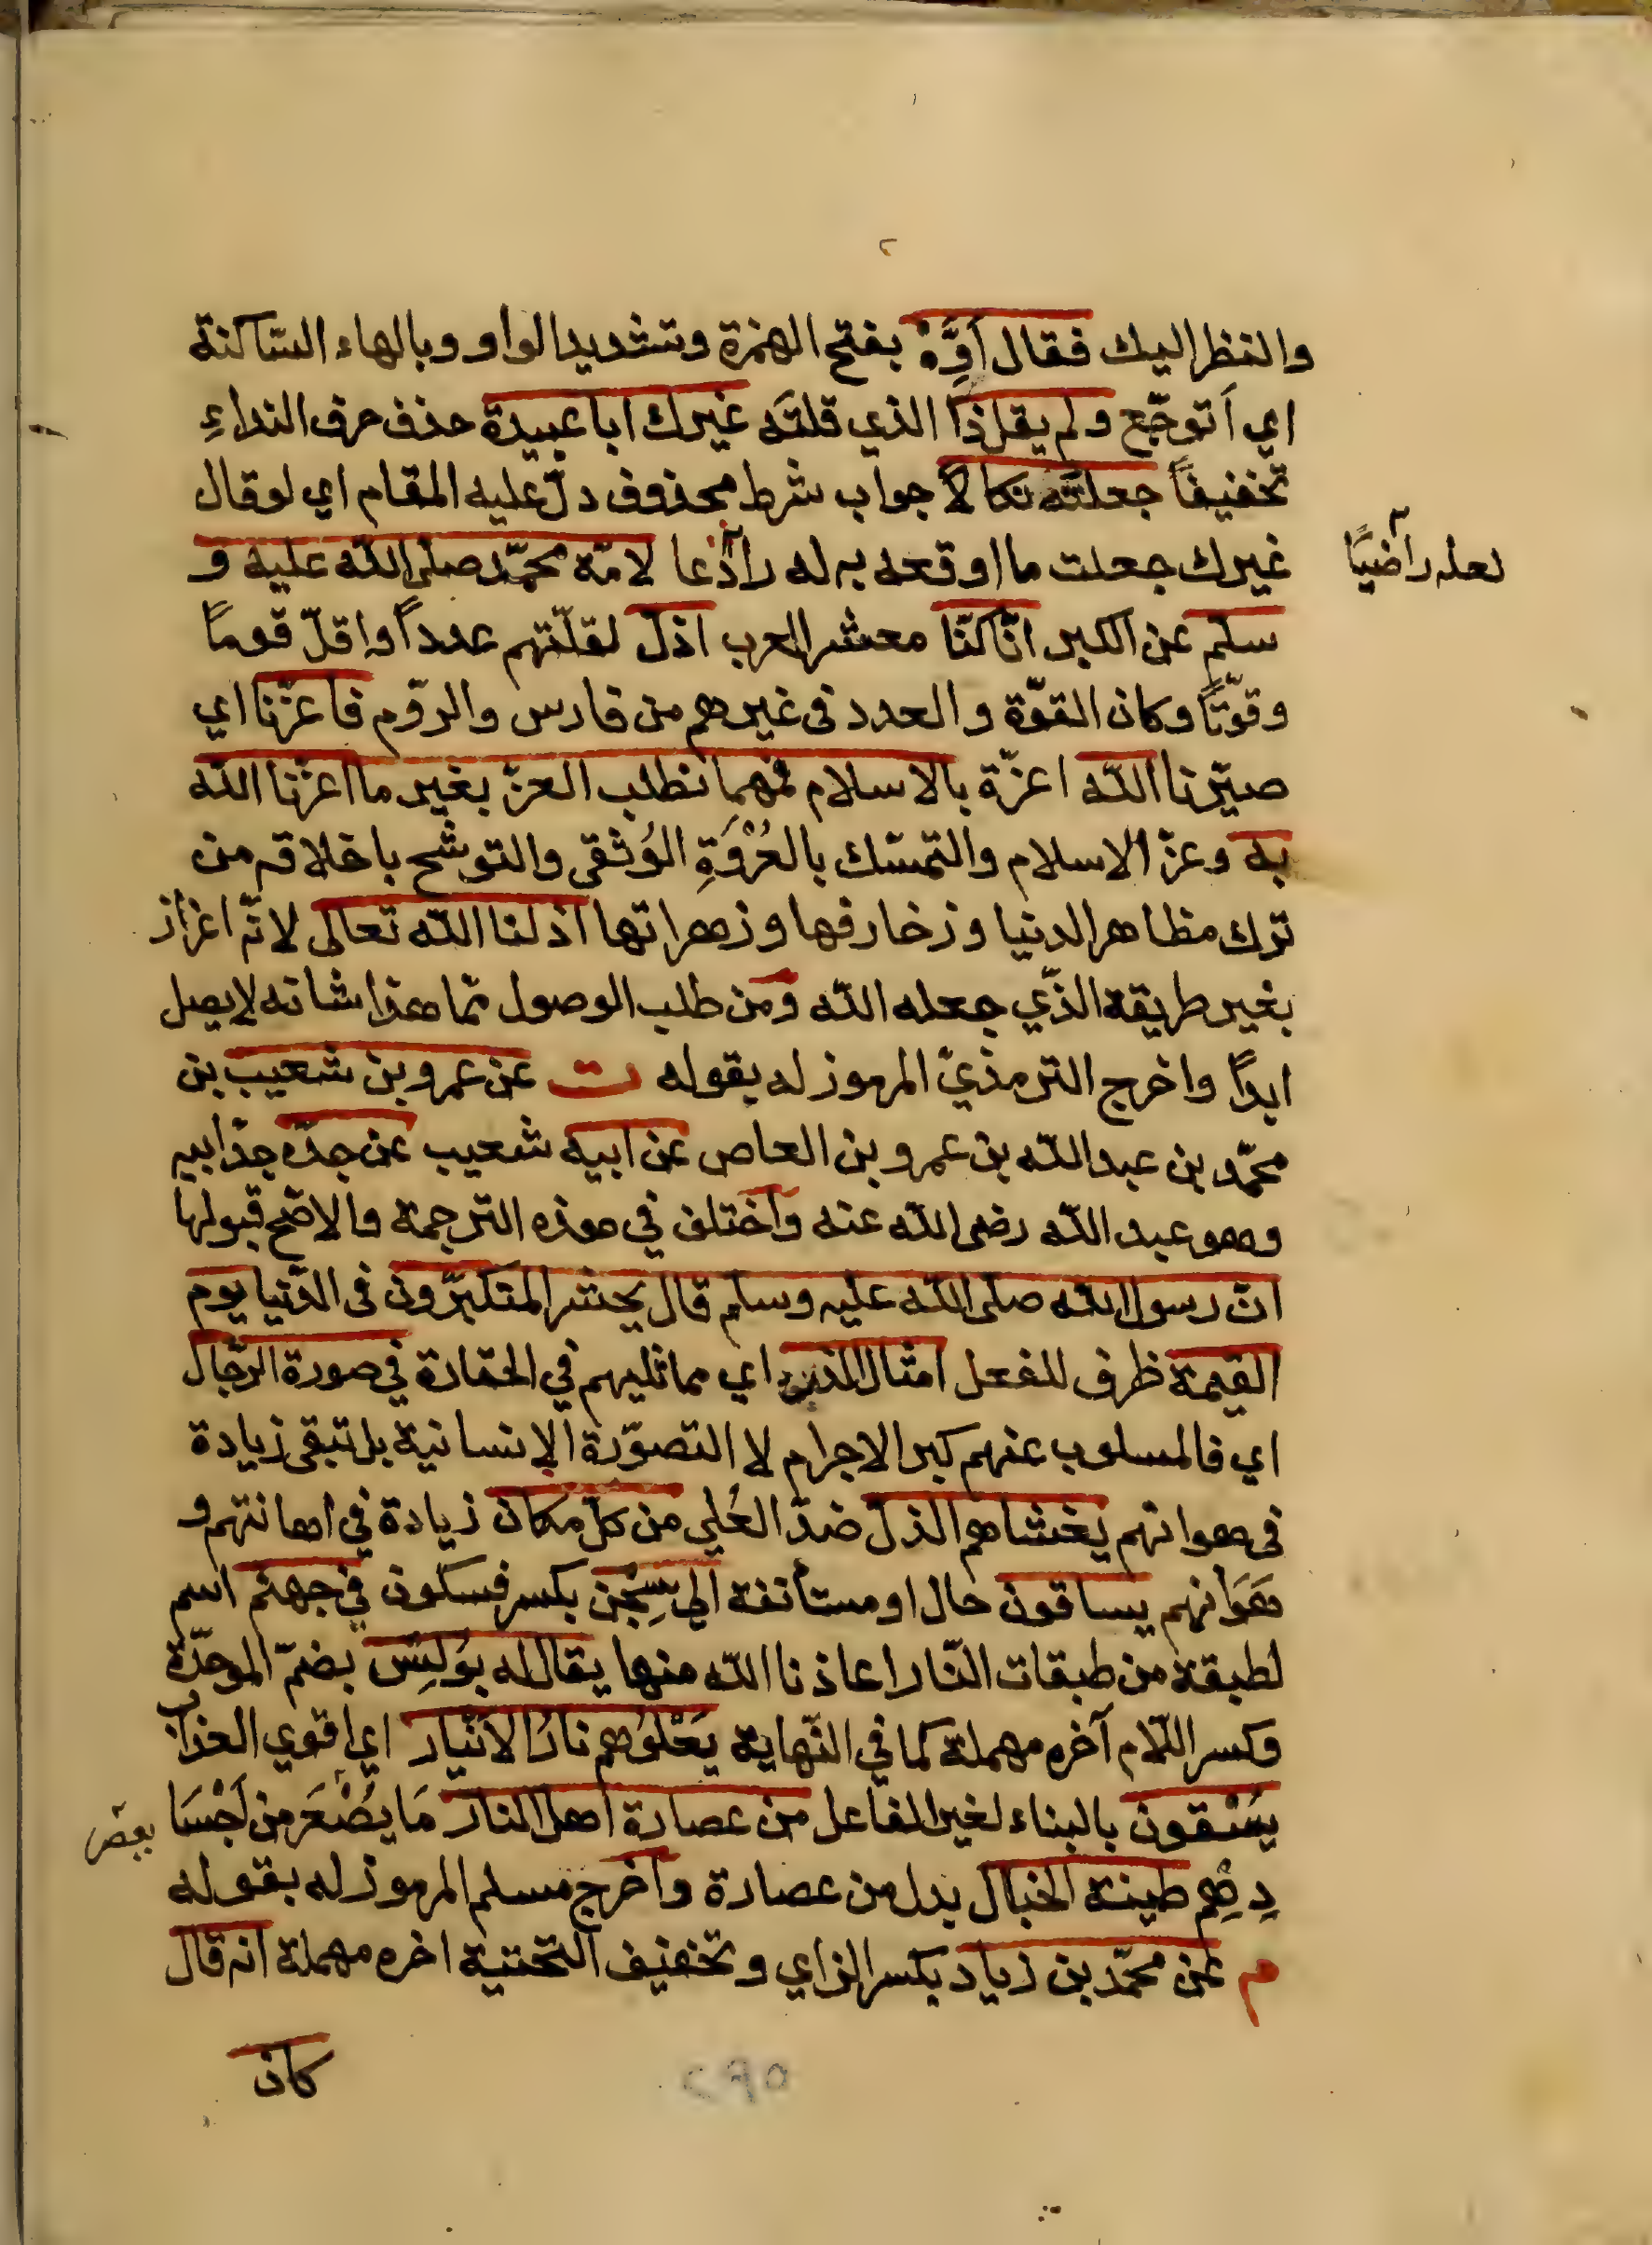 ٢
والنظر اليك فقال أَوَّهْ بفتح الهمزة وتشديد الواو وبالهاء السّاكنة
اي أتوجّع ولم يقل ذا الذي قلتَه غيرك ابا عبيدة حذف حرف النداءِ
تخفيفاً جعلته نكالاً جواب شرط محذوف دلّ عليه المقام اي لو قال
غيرك جعلت ما اوقعه به له رادّعا لامّة محمّد صلى الله عليه و
لعله راضيًا
سلم عن الكبر انّا كنّا معشر العرب اذلّ لقلّتهم عدداً واقلّ قوماً
وقوّتاً وكان القوّة والعدد فى غيرهم من فارس والرّوم فاعزّنا اي
صيّرنا الله اعزّة بالاسلام فمهما نطلب العزّ بغير ما اعزّنا الله
به وعزّ الاسلام والتمسّك بالعُرْوَةِ الوُثقى والتوشّح باخلاقه من
ترك مظاهر الدنيا وزخارفها وزهراتها اذلنا الله تعالى لانّه اعزاز
بغير طريقة الذّي جعله الله ومن طلب الوصول ممّا هذا شانه لا يصل
ابداً واخرج الترمذيّ المرموز له بقوله ت عن عمرو بن شعيب بن
محمّد بن عبد الله بن عمرو بن العاص عن ابيه شعيب عن جدّه جدّ ابيه
وهو عبد الله رضى الله عنه واختلف في هذه الترجمة والاصّح قبولها
انّ رسول الله صلى الله عليه وسلم قال يحشر المتكبّرون فى الدّنيا يوم
القيمة ظرف للفعل امثال الذر اي مماثليهم في الحقارة في صورة الرّجال
اي فالمسلوب عنهم كبر الاجرام لا التصوّرة الإنسانية بل تبقى زيادة
فى هوانهم يغشاهم الذلّ ضدّ العُلى من كلّ مكان زيادة في اهانتهم و
هَوَانهم يساقون حال او مستأنفة الى سِجْن بكسر فسكون في جهنّم اسم
لطبقة من طبقات النّار اعاذنا الله منها يقال له بوَلِسَ بضمّ الموحدّة
وكسر اللّام آخره مهملة كما في النّهاية يَعْلوُهم نارُ الأنْيار اي اقوي العذاب
يُسْقون بالبناء لغير الفاعل من عصارة اهل النار مَا يُصْعَر من أجْسَا
يعصر
دِهِم طينة الخبال بدل من عصارة واخرج مسلم المرموز له بقوله
م عن محمّد بن زياد بكسر الزاي وتخفيف التحتية اخره مهملة انه قال
كان
٢٩٥